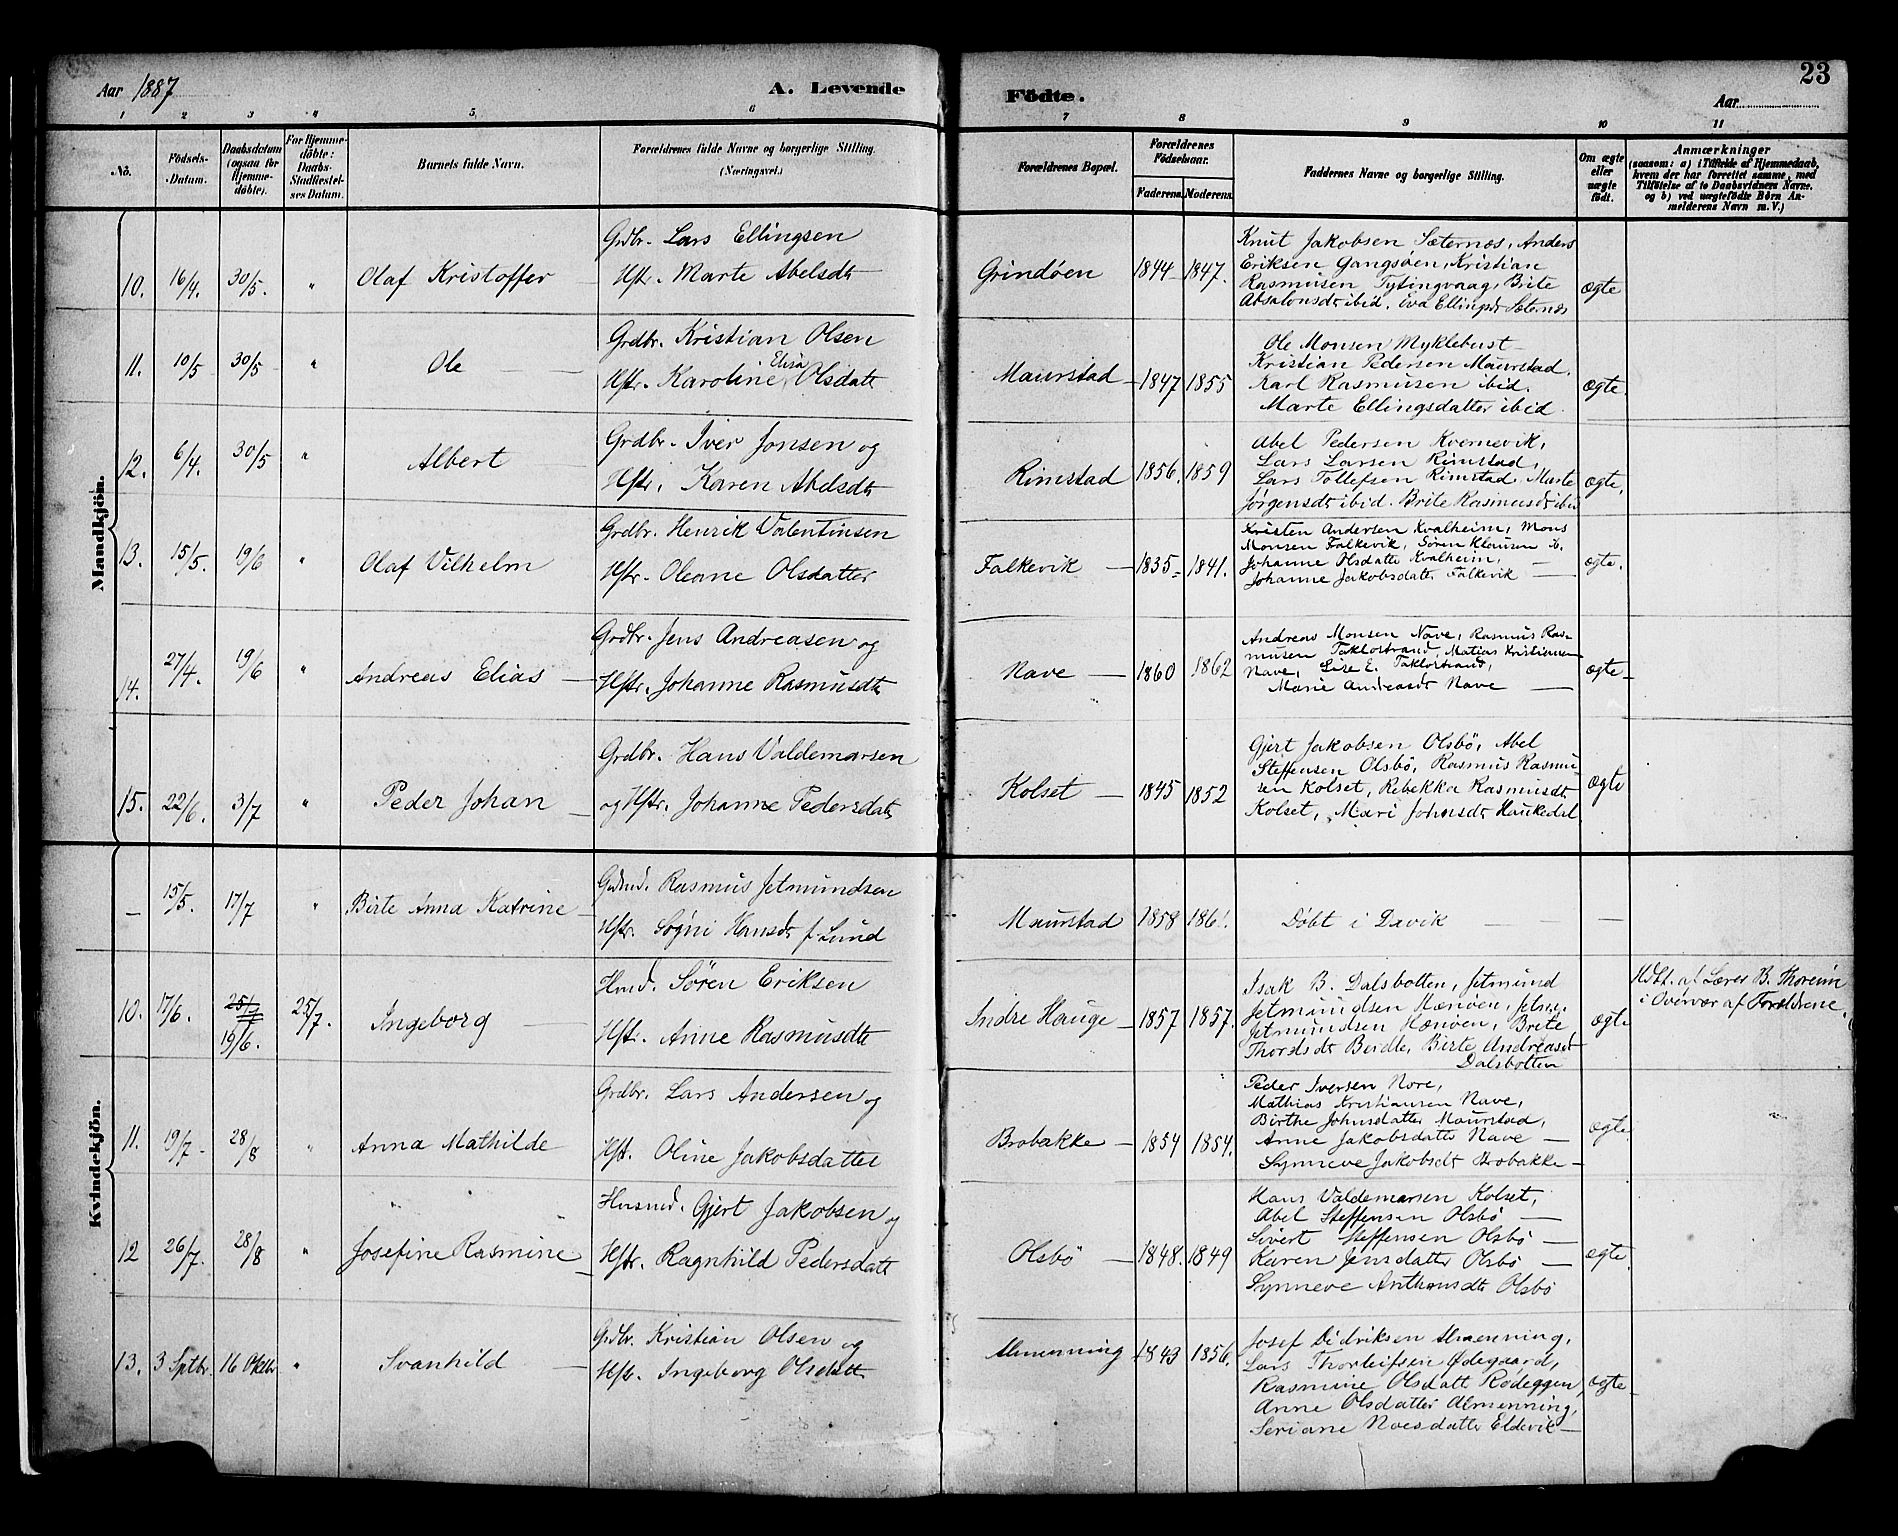 23
Aar 1887
A. Levende
Födte.
Aar
1 2 3 4 5 6 7 8 9 10 11
No.
Födsels-Datum.
Daabsdatum (ogsaa for Hjemme-döbte).
For Hjemme-döbte: Daabs-Stadfæstel-ses Datum.
Barnets fulde Navn.
Forældrenes fulde Navne og borgerlige Stilling. (Næringsvei.)
Forældrenes Bopæl.
Forældrenes Födselsaar.
Faderens. Moderens.
Faddernes Navne og borgerlige Stilling.
Om ægte eller uægte födt.
Anmærkninger
(saasom: a) i Tilfælde af Hjemmedaab,
hvem der har forrettet samme, med
Tilföielse af to Daabsvidners Navne.
og b) ved uægtefödte Börn An-
melderens Navn m. V.)
Mandkjön.
10. 16/4. 30/5. " Olaf Kristoffer
Grdbr. Lars Ellingsen
Hstr. Marte Abelsdtr
Grindöen 1844 1847.
Knut Jakobsen Sæternæs, Anders
Eriksen Gangsöen, Kristian
Rasmusen Tytingvaag, Brite
Absalonsdtr ibid. Eva Ellingsdr Sæternæs
ægte
11. 10/5 30/5 " Ole
Grdbr. Kristian Olsen
Hstr. Karoline Elisa Olsdatt
Maurstad 1847 1855
Ole Monsen Myklebust
Kristian Pedersen Maurstad.
Karl Rasmusen ibid.
Marte Ellingsdatter ibid
ægte.
12. 6/4. 30/5 " Albert
Grdbr. Iver Jonsen og
Hstr. Karen Abelsdtr
Rimstad 1856. 1859
Abel Pedersen Kvernevik,
Lars Larsen Rimstad,
Lars Tollefsen Rimstad Marte
Jørgensdtr ibid. Brite Rasmusdtr ibid
ægte.
13. 15/5. 19/6 " Olaf Vilhelm
Grdbr. Henrik Valentinsen
Hstr. Oleane Olsdatter
Falkevik 1835 1841.
Kristen Andersen Kvalheim, Mons
Monsen Falkevik, Søren Klausen
Johanne Olsdatter Kvalheim,
Johanne Jakobsdatter Falkevik
ægte.
14. 27/4. 19/6 " Andreas Elias
Grdbr. Jens Andreasen og
Hstr. Johanne Rasmusdtr
Nave 1860 1862
Andreas Monsen Nave, Rasmus Ras-
musen Taklostrand, Matias Kristiansen
Nave, Lise E. Taklostrand,
Marie Andreasdr Nave
ægte
15. 22/6. 3/7 " Peder Johan
Grdbr. Hans Valdemarsen
og Hstr. Johanne Pedersdatr
Kolset 1845 1852
Gjert Jakobsen Olsbö, Abel
Steffensen Olsbö, Rasmus Rasmu-
sen Kolset, Rebekka Rasmusdtr
Kolset, Mari Johnsdtr Haukedal
ægte
Kvindekjön.
— 15/5. 17/7 " Birte Anna Katrine
Rasmus Jetmundsen
Hstr. Søgni Hansdtr f. Lund
Maurstad 1858 1861
Døbt i Davik
—
10. 17/6. 25/7 19/6. 25/7. Ingeborg
Hmd. Søren Eriksen
Hstr. Anne Rasmusdtr
Indre Hauge 1857 1857.
Isak B. Dalsbotten, Jetmund
Jetmundsen Hennöen, Jetm.
Jetmundsen Hennöen, Brite
Thordsdtr Berdle, Birte Andreasdr
Dalsbotten
ægte
Hdbt. af Lærer B. Thoreim
i Overvær af Forældrene.
11. 19/7. 28/8 " Anna Mathilde
Grdbr. Lars Andersen og
Hst. Oline Jakobsdatter
Brobakke 1854 1854.
Peder Iversen Nore,
Mathias Kristiansen Nave,
Birthe Johnsdatter Maurstad,
Anne Jakobsdatter Nave
Synneve Jakobsdtr Brobakke
ægte.
12 26/7. 28/8 " Josefine Rasmine
Husmd. Gjert Jakobsen og
Hstr. Ragnhild Pedersdatt
Olsbö 1848. 1849
Hans Valdemarsen Kolset,
Abel Steffensen Olsbö
Sivert Steffensen Olsbö
Karen Jensdatter Olsbö
Synneve Anthonsdtr Olsbö
ægte.
13. 3 Sptbr. 16 Oktbr " Svanhild
Grdbr. Kristian Olsen og
Hstr. Ingeborg Olsdatt
Almenning 1843 1856.
Josef Didriksen Almenning,
Lars Thorleifsen Ødegaard,
Rasmine Olsdatt Rødeggen,
Anne Olsdatter Almenning,
Seriane Noesdatter Eldevik
ægte